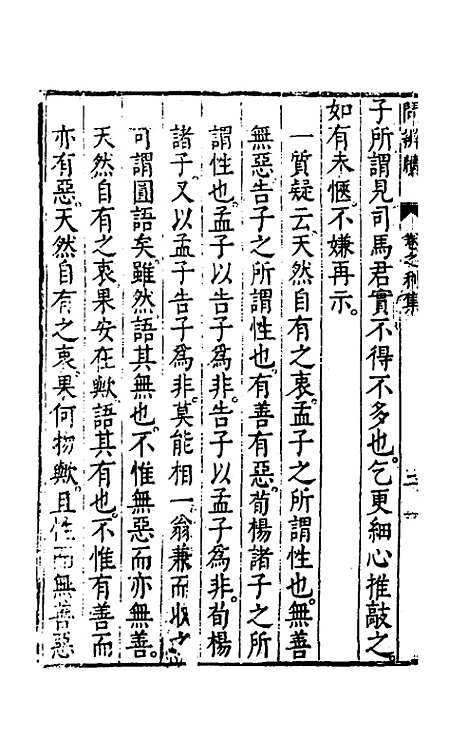 問辨牘　卷之利集
子所謂見司馬君實不得不多也。乞更細心推敲之
如有未愜。不嫌再示。
一質疑云。天然自有之衷。孟子之所謂性也。無善
無惡。告子之所謂性也。有善有惡。荀楊諸子之所
謂性也。孟子以告子為非。告子以孟子為非。荀楊
諸子。又以孟子告子為非。莫能相一。翁兼而收之
可謂圓語矣。雖然語其無也。不惟無惡而亦無善。
天然自有之衷果安在歟。語其有也。不惟有善而
亦有惡。天然自有之衷果何物歟。且性而無善惡